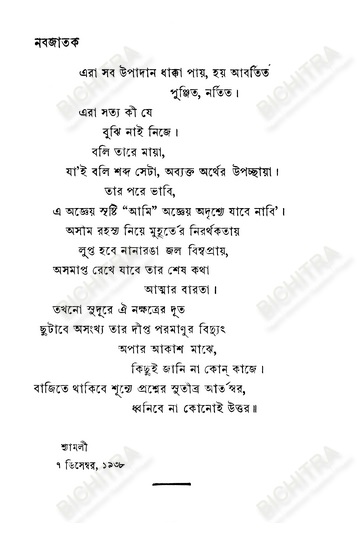 নবজাতক
এরা সব উপাদান ধাক্কা পায়, হয় আবর্তিত
পুঞ্জিত, নর্তিত।
এরা সত্য কী যে
বুঝি নাই নিজে।
বলি তারে মায়া,
যা'ই বলি শব্দ সেটা, অব্যক্ত অর্থের উপচ্ছায়া।
তার পরে ভাবি,
এ অজ্ঞেয় সৃষ্টি "আমি" অজ্ঞেয় অদৃশ্যে যাবে নাবি'।
অসীম রহস্য নিয়ে মুহূর্তের নিরর্থকতায়
লুপ্ত হবে নানারঙা জল বিম্বপ্রায়,
অসমাপ্ত রেখে যাবে তার শেষ কথা
আত্মার বারতা।
তখনো সুদূরে ঐ নক্ষত্রের দূত
ছুটাবে অসংখ্য তার দীপ্ত পরমাণুর বিদ্যুৎ
অপার আকাশ মাঝে,
কিছুই জানি না কোন্ কাজে।
বাজিতে থাকিবে শূন্যে প্রশ্নের সুতীব্র আর্তস্বর,
ধ্বনিবে না কোনোই উত্তর॥
শ্যামলী
৭ ডিসেম্বর, ১৯৩৮
BICHITRA
BICHITRA
BICHITRA
BICHITRA
BICHITRA
BICHITRA
BICHITRA
BICHITRA